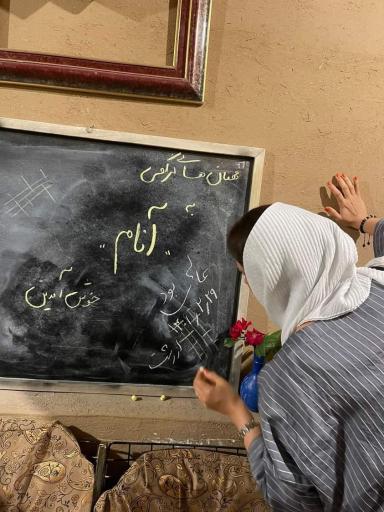 مهمان های گرامی
به
"آنام"
خوش آمدین
عالی
بود